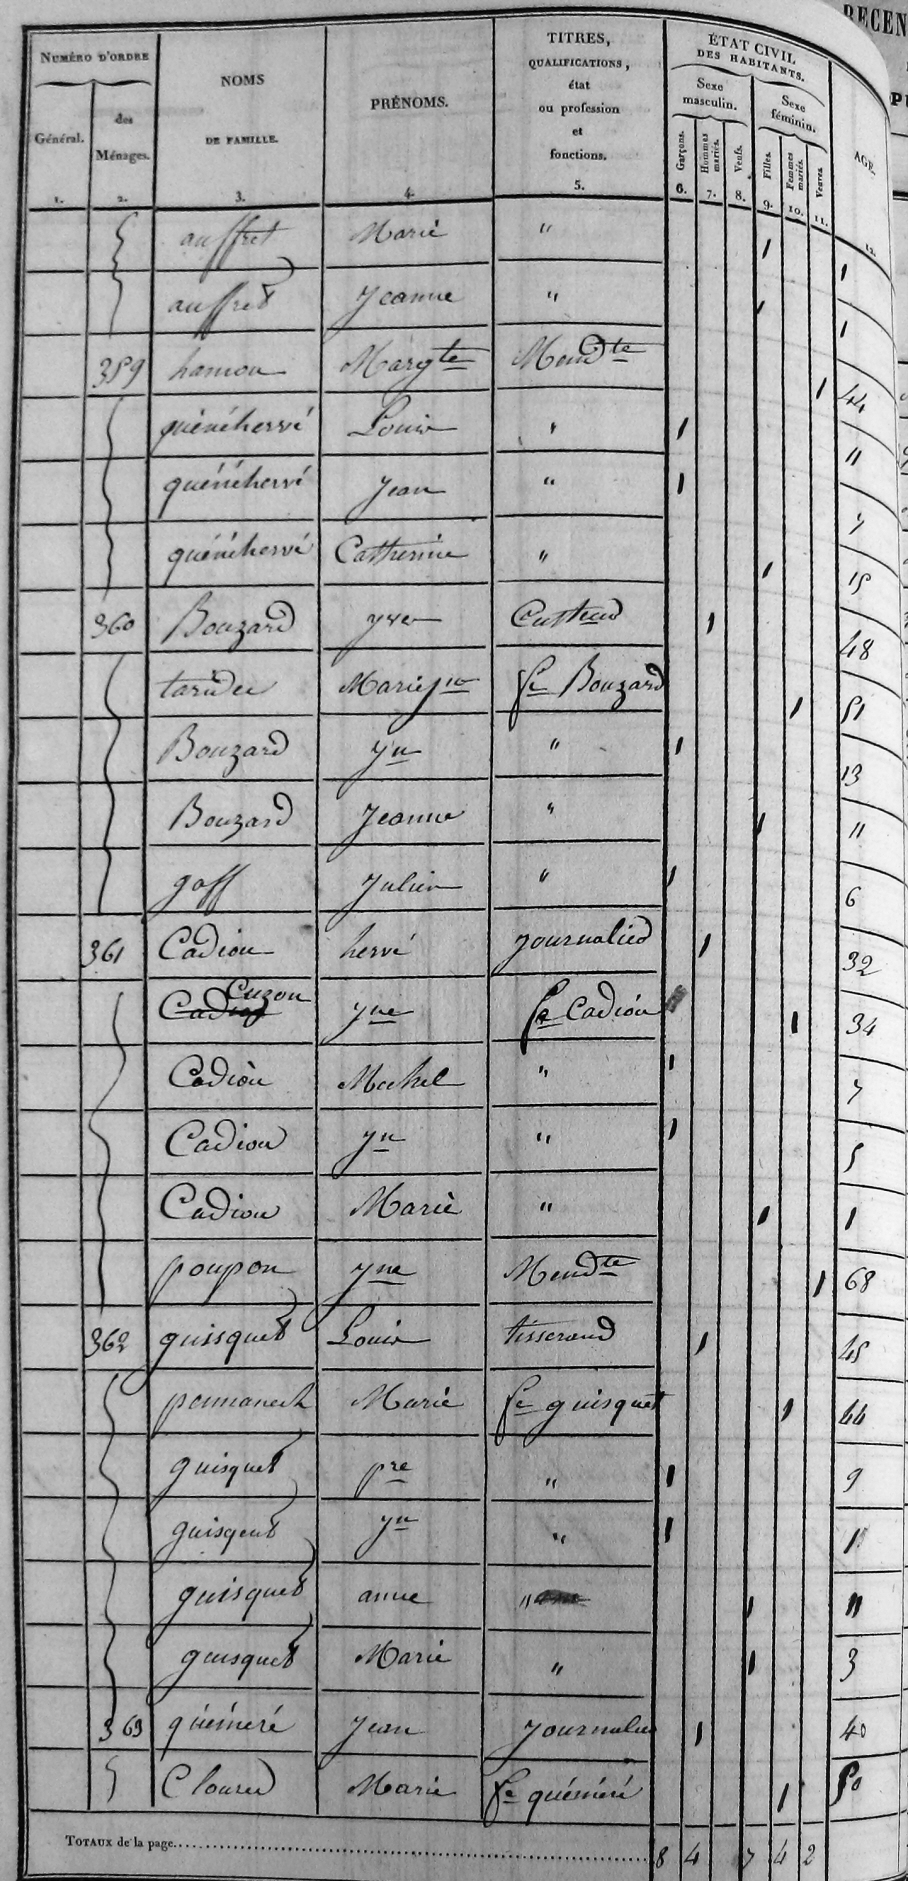 RECEN
NUMÉRO D'ORDRE
Général.
des Ménages.
NOMS DE FAMILLE.
PRÉNOMS.
TITRES, QUALIFICATIONS, état ou profession et fonctions.
ÉTAT CIVIL DES HABITANTS.
Sexe masculin.
Sexe féminin.
Garçons.
Hommes mariés.
Veufs.
Filles.
Femmes mariés.
Veuves.
AGE.
1. 2. 3. 4. 5. 6. 7. 8. 9. 10. 11. 12.
auffret Marie " 1 1
auffret Jeanne " 1 1
359 hamon Margte Mendte 1 44
quénéhervé Louis " 1 11
quénéhervé Jean " 1 7
quénéhervé Catherine " 1 15
360 Bouzard yves Cultivd 1 48
Marie jne fe Bouzard 1 51
Bouzard yn " 1 13
Bouzard Jeanne " 1 11
goff Julien " 1 6
361 Cadiou hervé journalied 1 32
Cuzon yne fe Cadiou 1 34
Cadiou Michel " 1 7
Cadiou yn " 1 5
Cadiou Marie " 1 1
poupon yne Mendte 1 68
362 guisquet Louis tisserand 1 45
pennanech Marie fe guisquet 1 44
guisquet pre " 1 9
guisqeut yn " 1 1
guisquet anne " 1 11
guisquet Marie " 1 3
363 quéméré Jean journalier 1 40
Cloarec Marie fe quéméré 1 50
TOTAUX de la page 8 4 7 4 2